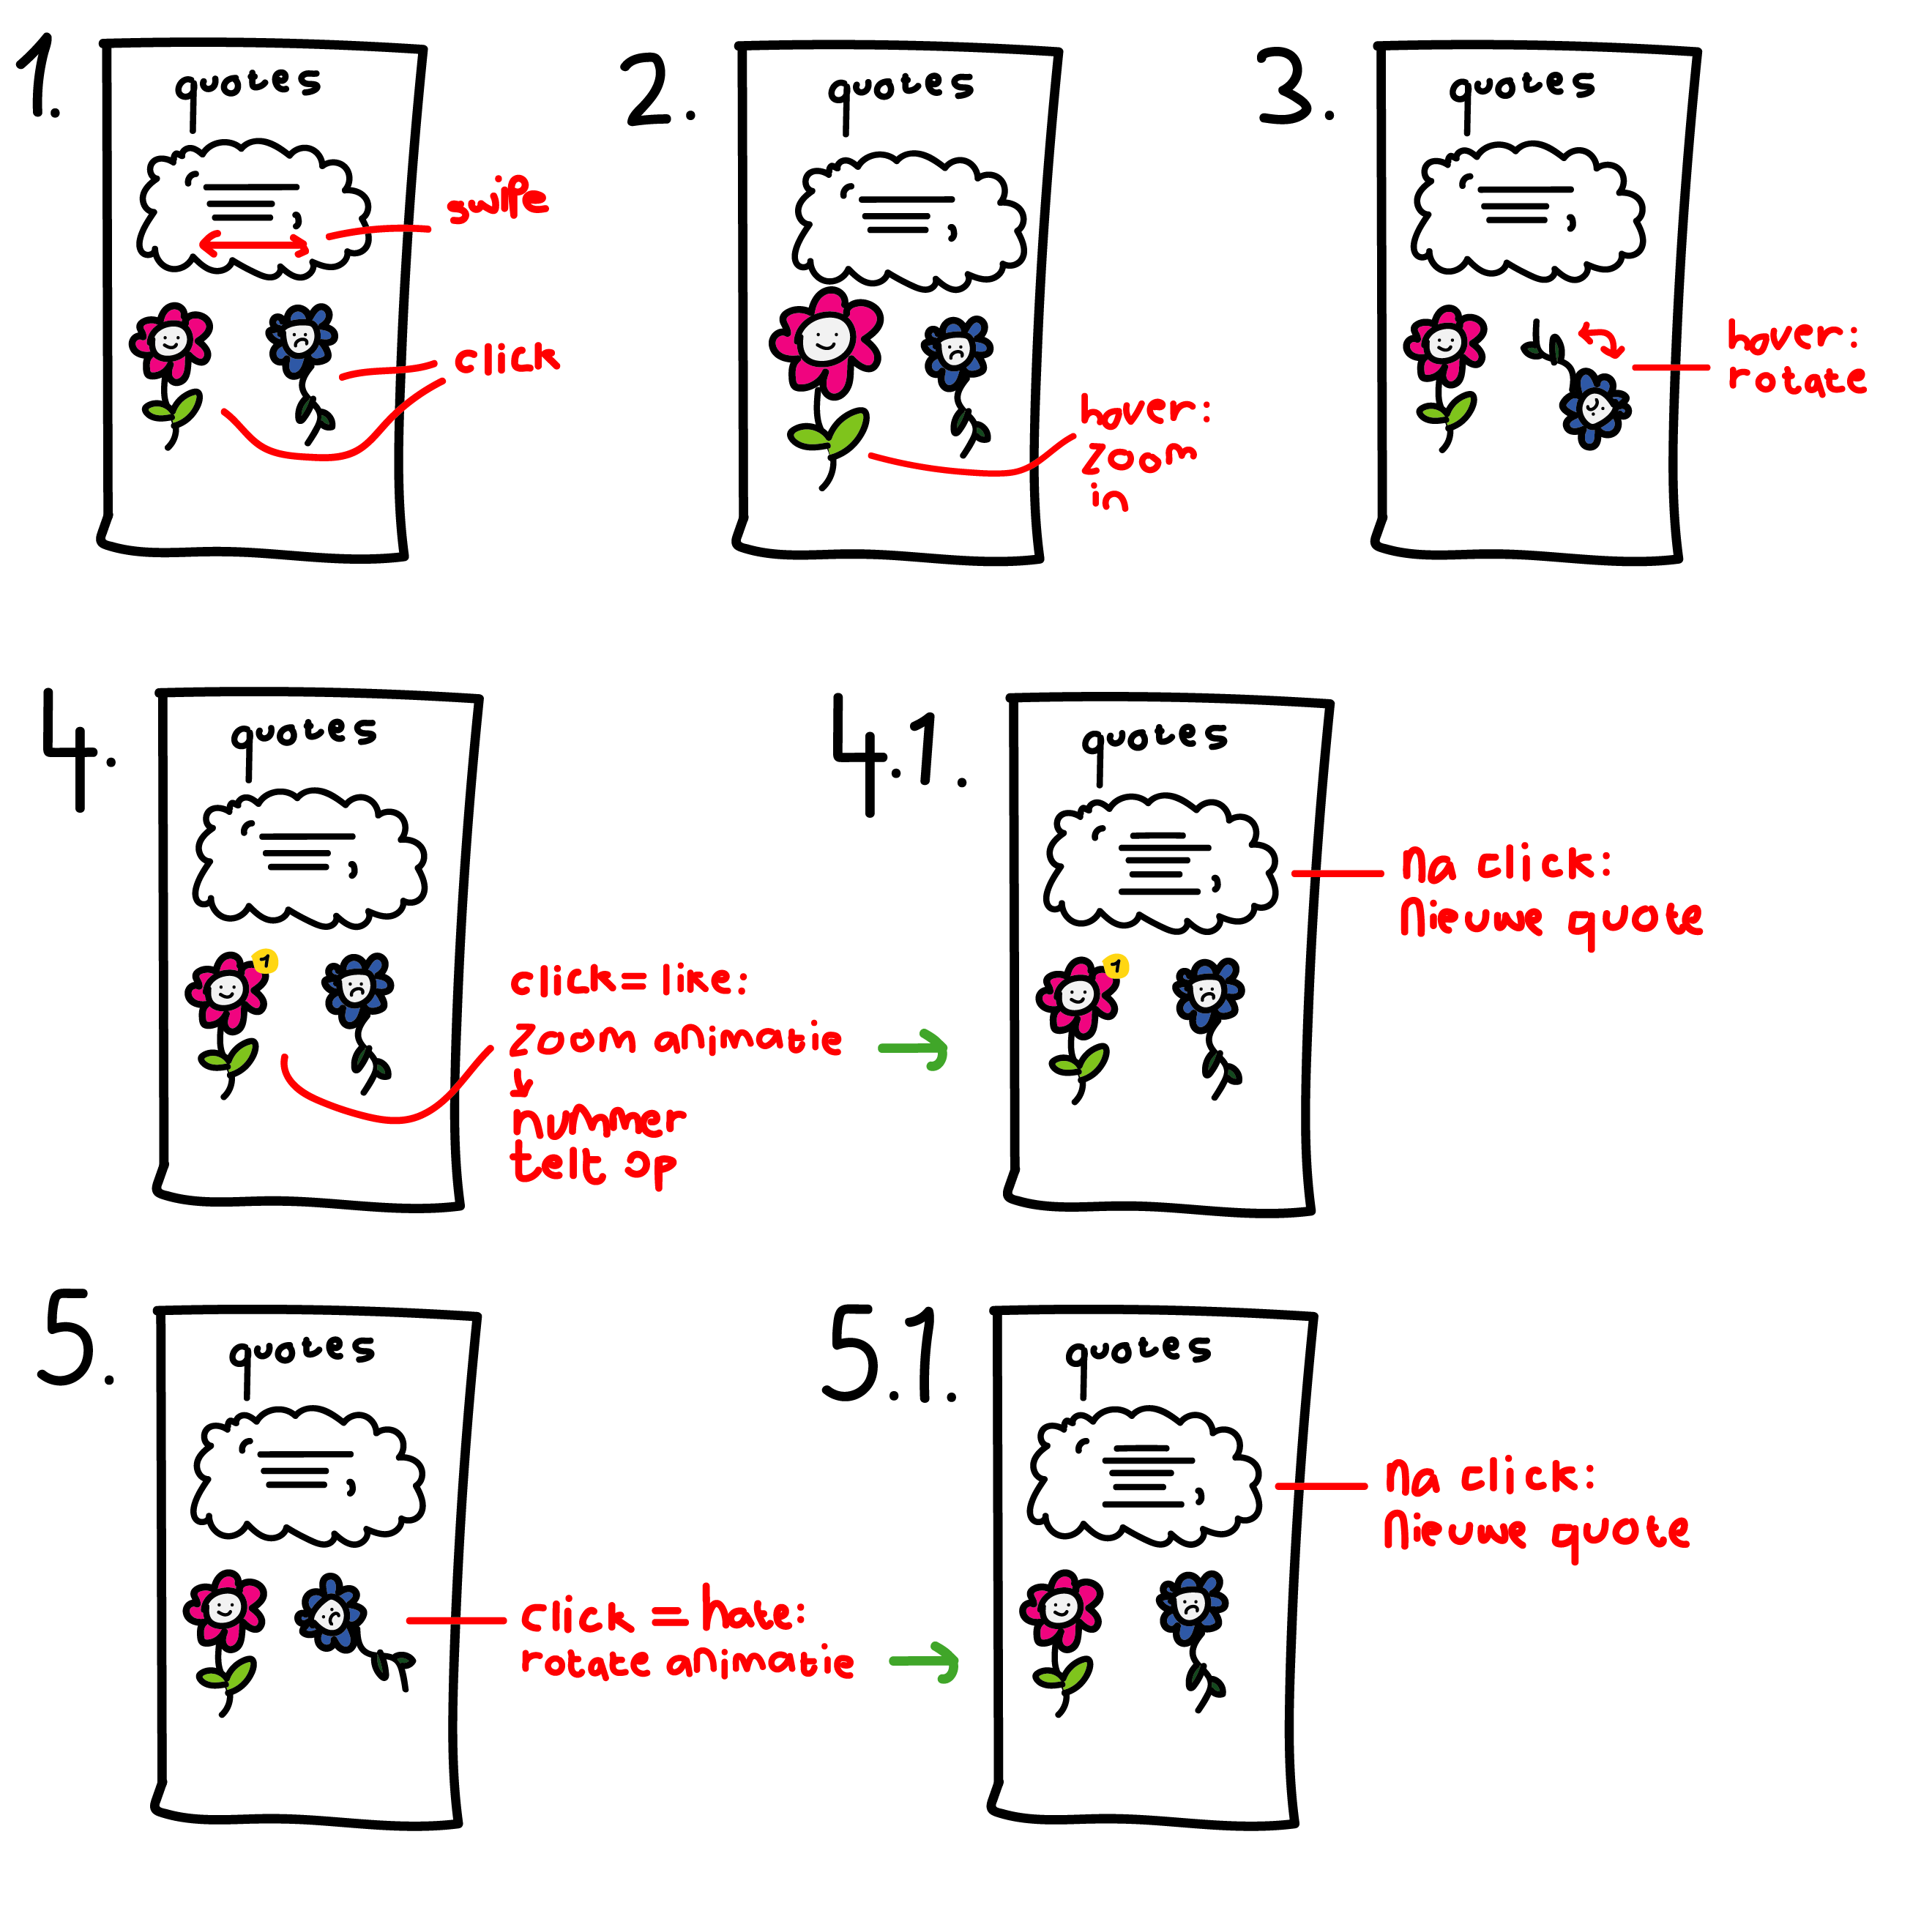 1.
quotes
swipe
click
2.
quotes
hover:
zoom
in
3.
quotes
hover:
rotate
4.
quotes
1
click = like:
zoom animatie
nummer
telt op
4.1.
quotes
1
Na click:
Nieuwe quote
5.
quotes
click = hate:
rotate animatie
5.1.
quotes
Na click:
Nieuwe quote